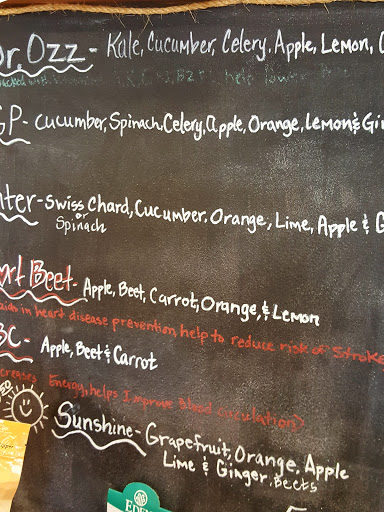 Dr. Ozz - Kale, Cucumber, Celery, Apple, Lemon,
GP - Cucumber, Spinach, Celery, apple, Orange, Lemon & Gin
nter - Swiss Chard, Cucumber, Orange, Lime, Apple & G
or
Spinach
art Beet - Apple, Beet, Carrot, Orange, & Lemon
aids in heart disease prevention, help to reduce risk of Stroke
BC - Apple, Beet & Carrot
creases Energy, helps Improve Blood circulation
Sunshine - Grapefruit, Orange, Apple
Lime & Ginger, Beets
EDEN